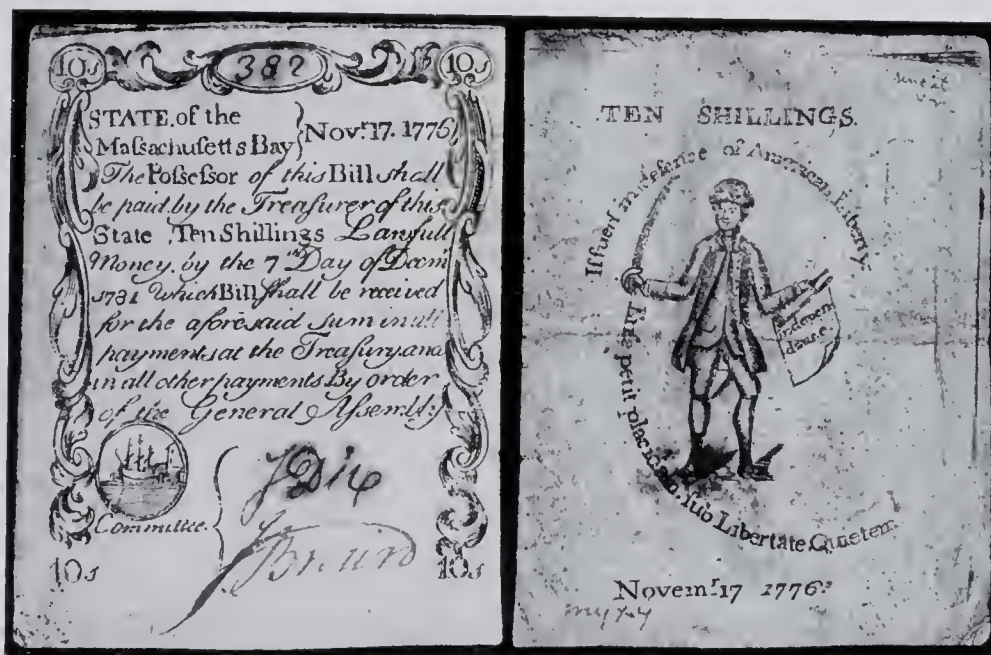 10s 382 10s
STATE of the
Maſsachuſetts Bay } Novr. 17. 1776
The Poſseſsor of this Bill ſhall
be paid by the Treaſurer of this
State Ten Shillings Lawfull
Money, by the 7th Day of Decm
1781 which Bill ſhall be received
for the aforesaid ſum in all
payments at the Treaſury and
in all other payments By order
of the General Aſsembly
Committee
J Dix
10s 10s
TEN SHILLINGS.
Iſſued in defence of American Liberty.
Independence
Enſe petit placidam, ſub Libertate Quietem
Novemr. 17 1776